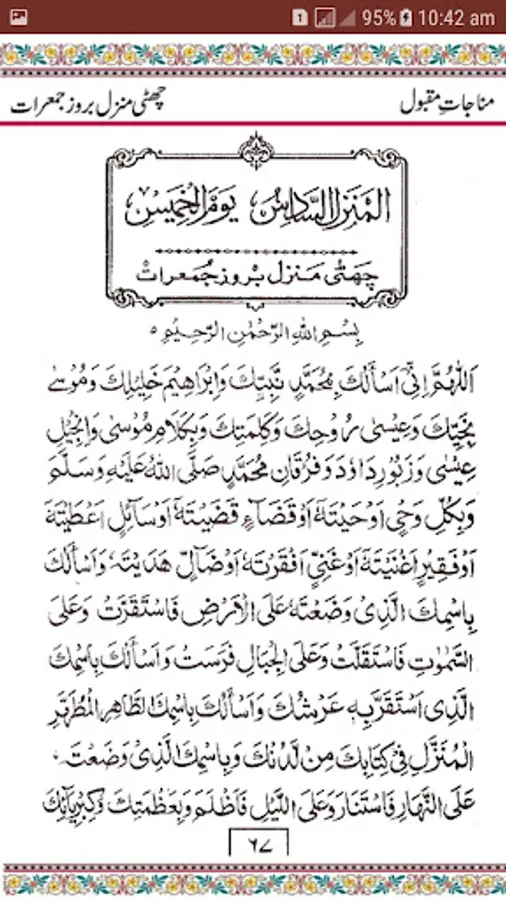 1 95% 10:42 am
مناجاتِ مقبول چھٹی منزل بروز جمعرات
المَنزِلُ السَّادِسُ يَومُ الخَمِيسِ
چھٹی منزل بروز جُمعرات
بِسْمِ اللهِ الرَّحْمٰنِ الرَّحِيْمِ ○
اَللّٰهُمَّ اِنِّيْٓ اَسْاَلُكَ بِمُحَمَّدٍ نَّبِيِّكَ وَاِبْرَاهِيْمَ خَلِيْلِكَ وَمُوْسٰى
نَجِيِّكَ وَعِيْسٰى رُوْحِكَ وَكَلِمَتِكَ وَبِكَلَامِ مُوْسٰى وَاِنْجِيْلِ
عِيْسٰى وَزَبُوْرِ دَاوٗدَ وَفُرْقَانِ مُحَمَّدٍ صَلَّى اللهُ عَلَيْهِ وَسَلَّمَ
وَبِكُلِّ وَحْيٍ اَوْحَيْتَهٗٓ اَوْ قَضَآءٍ قَضَيْتَهٗٓ اَوْ سَآئِلٍ اَعْطَيْتَهٗٓ
اَوْ فَقِيْرٍ اَغْنَيْتَهٗٓ اَوْ غَنِيٍّ اَفْقَرْتَهٗٓ اَوْ ضَآلٍّ هَدَيْتَهٗ وَاَسْاَلُكَ
بِاسْمِكَ الَّذِيْ وَضَعْتَهٗ عَلَى الْاَرْضِ فَاسْتَقَرَّتْ وَعَلَى
السَّمٰوٰتِ فَاسْتَقَلَّتْ وَعَلَى الْجِبَالِ فَرَسَتْ وَاَسْاَلُكَ بِاسْمِكَ
الَّذِي اسْتَقَرَّ بِهٖ عَرْشُكَ وَاَسْاَلُكَ بِاسْمِكَ الطَّاهِرِ الْمُطَهَّرِ
الْمُنَزَّلِ فِيْ كِتَابِكَ مِنْ لَّدُنْكَ وَبِاسْمِكَ الَّذِيْ وَضَعْتَهٗ
عَلَى النَّهَارِ فَاسْتَنَارَ وَعَلَى اللَّيْلِ فَاَظْلَمَ وَبِعَظَمَتِكَ وَكِبْرِيَآئِكَ
٦٧